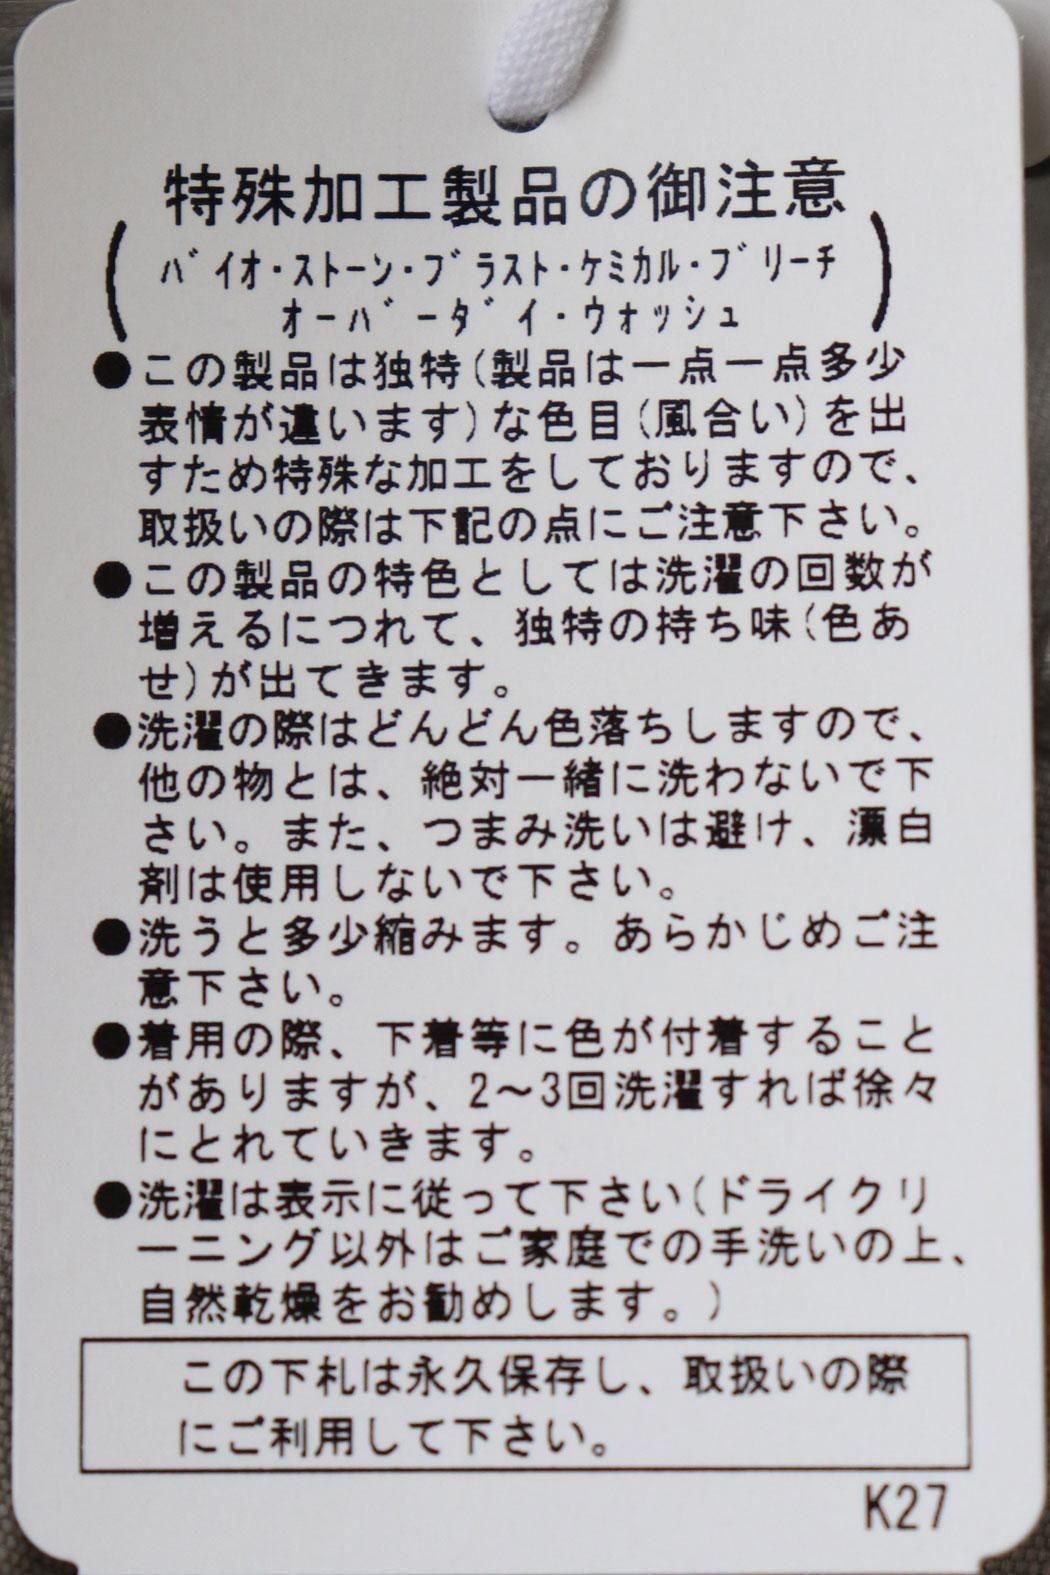 特殊加工製品の御注意
(バイオ・ストーン・ブラスト・ケミカル・ブリーチ
オーバーダイ・ウォッシュ)
●この製品は独特(製品は一点一点多少
表情が違います)な色目(風合い)を出
すため特殊な加工をしておりますので、
取扱いの際は下記の点にご注意下さい。
●この製品の特色としては洗濯の回数が
増えるにつれて、独特の持ち味(色あ
せ)が出てきます。
●洗濯の際はどんどん色落ちしますので、
他の物とは、絶対一緒に洗わないで下
さい。また、つまみ洗いは避け、漂白
剤は使用しないで下さい。
●洗うと多少縮みます。あらかじめご注
意下さい。
●着用の際、下着等に色が付着すること
がありますが、2〜3回洗濯すれば徐々
にとれていきます。
●洗濯は表示に従って下さい(ドライクリ
ーニング以外はご家庭での手洗いの上、
自然乾燥をお勧めします。)
この下札は永久保存し、取扱いの際
にご利用して下さい。
K27